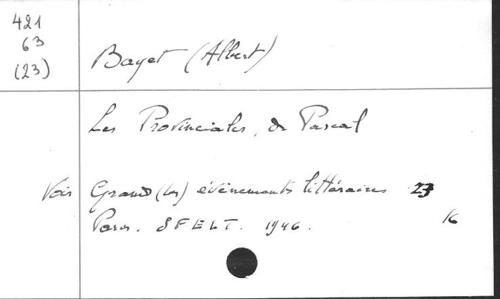 421
63
(23)
Bayet (Albert)
Les Provinciales, de Pascal
Voir Grands (les) évènements littéraires 23
Paris. SFELT. 1946.
16